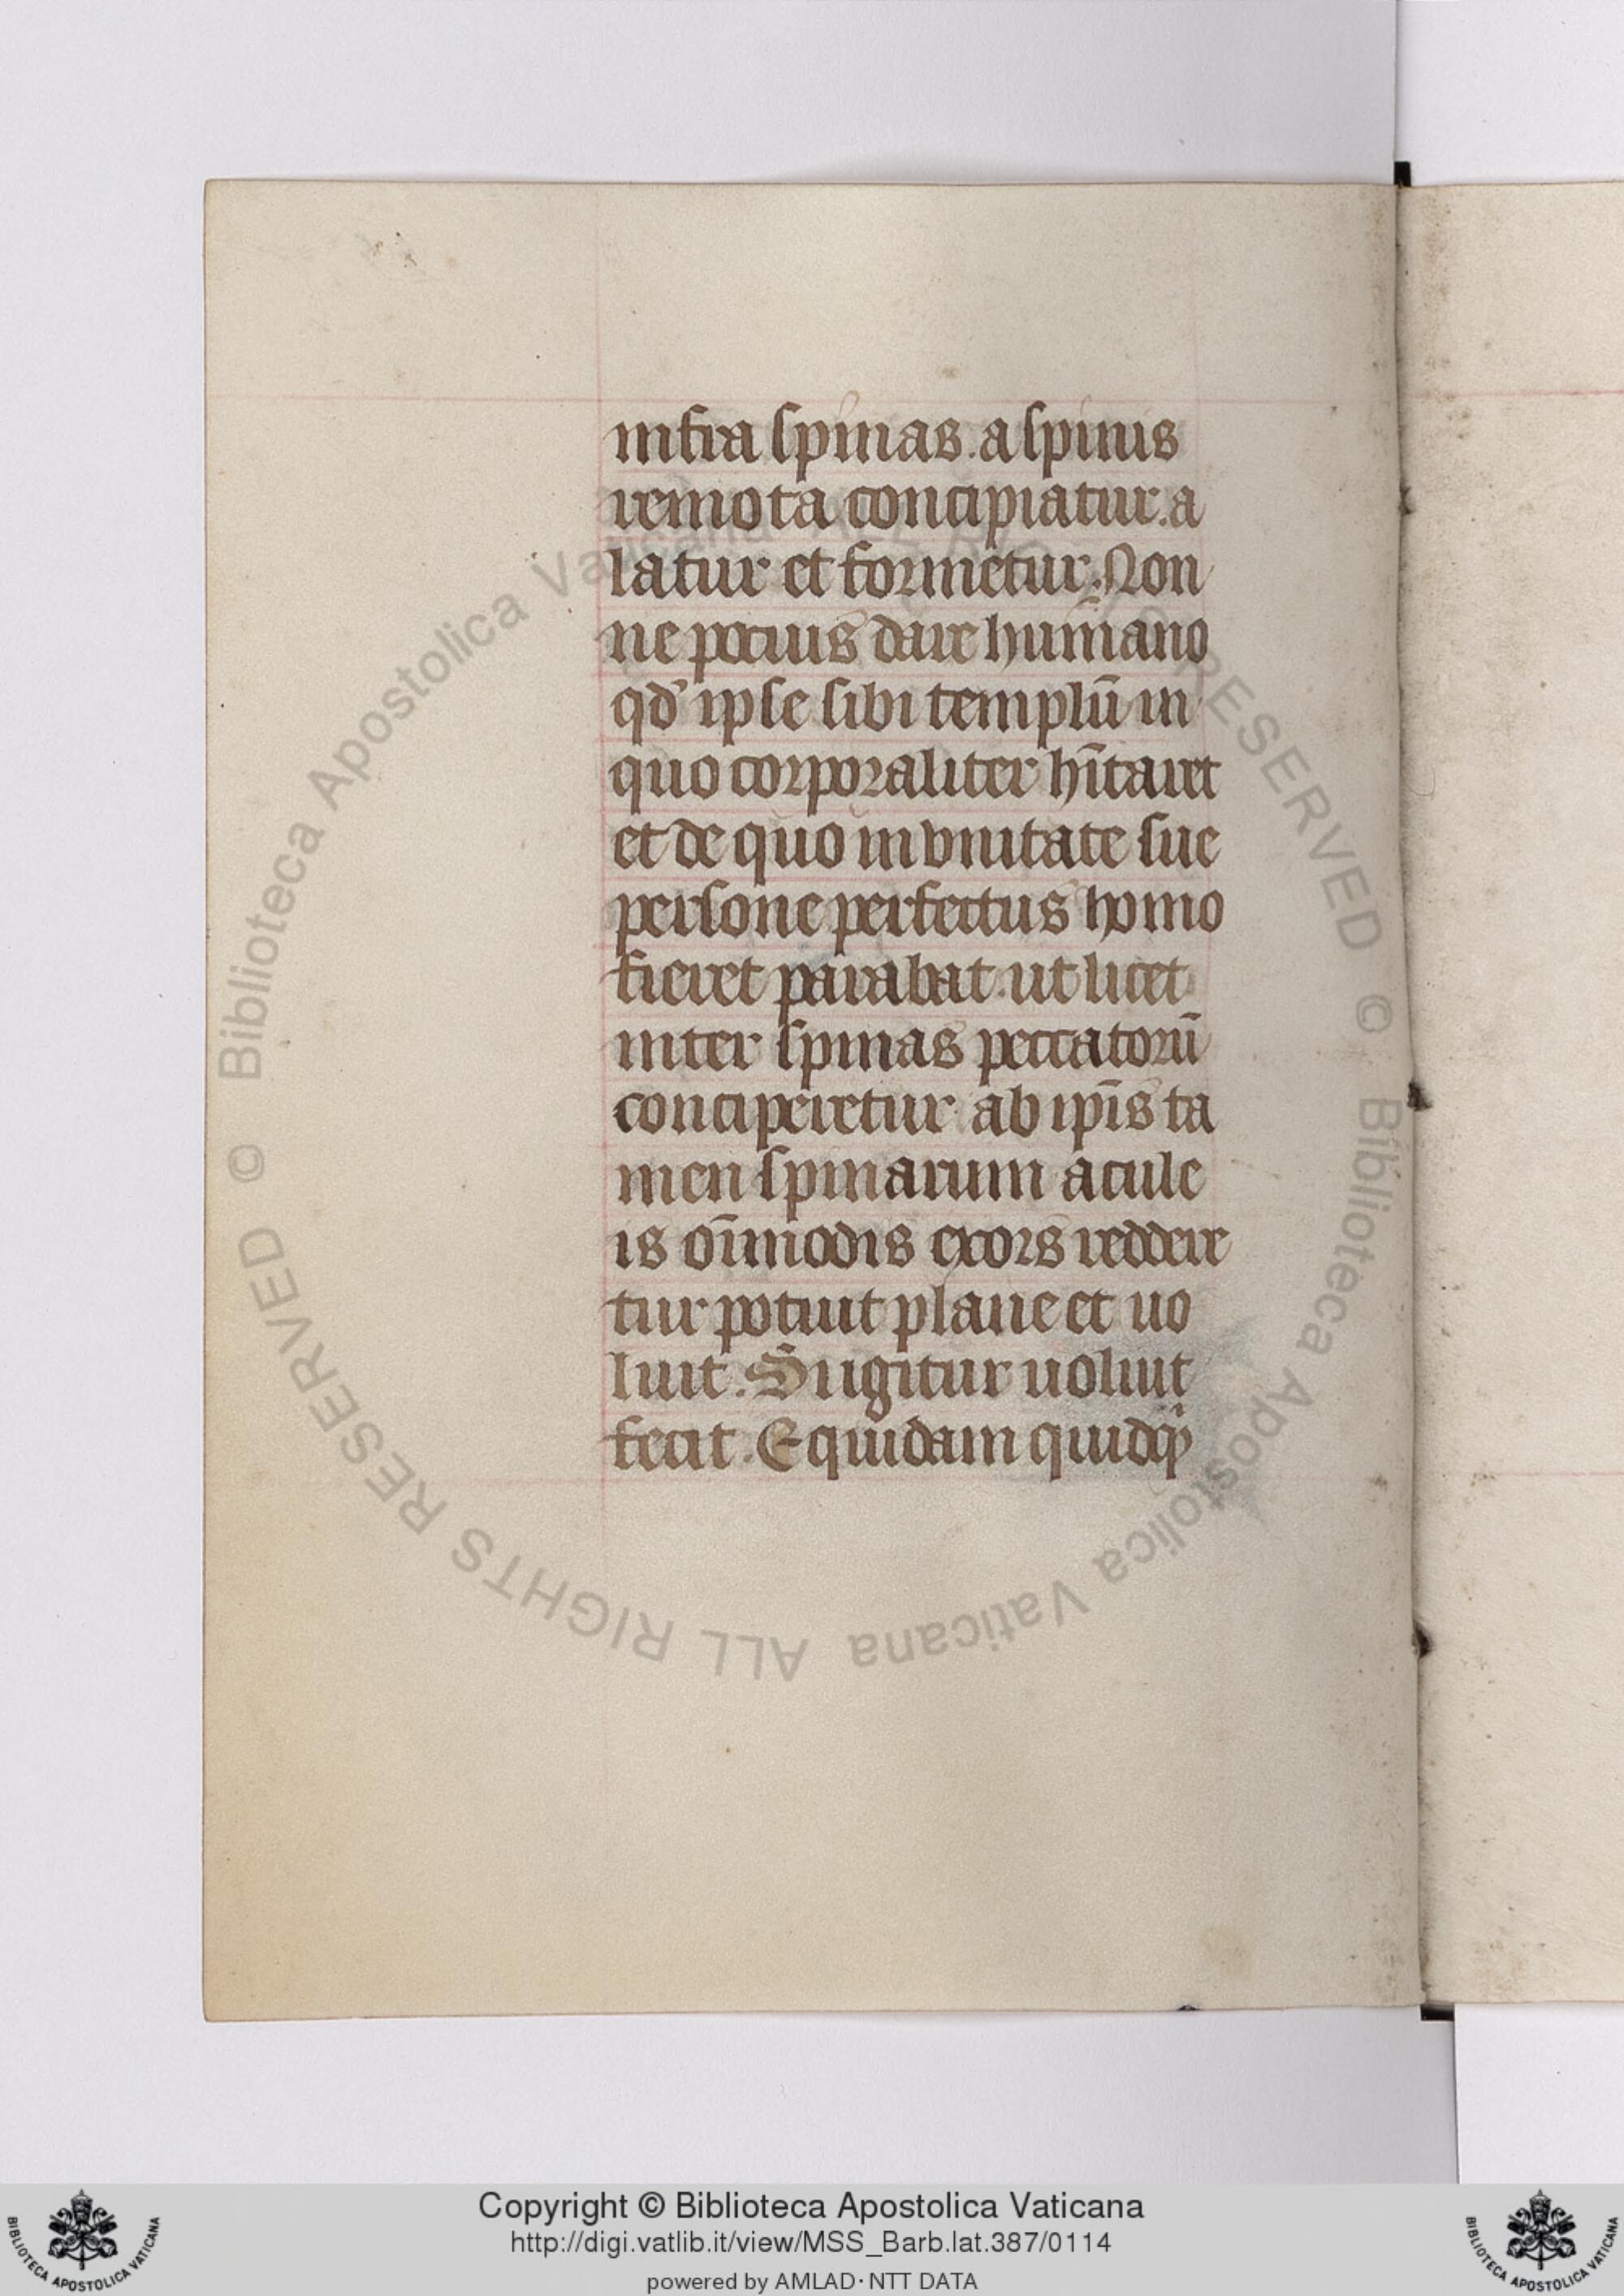 infra spinas. a spinis
remota concipiatur. a
latur et formetur. Non
ne pocius dare humano
qd' ipse sibi templū in
quo corporaliter hītaret
et de quo in vnitate sue
persone perfectus homo
fieret parabat. ut licet
inter spinas peccatorū
conciperetur ab ip̄is ta
men spinarum acule
is oīmodis exors reddere
tur potuit plane et uo
luit. Si igitur uoluit
fecit. Equidam quidq̄
© Biblioteca Apostolica Vaticana ALL RIGHTS RESERVED © Biblioteca Apostolica Vaticana ALL RIGHTS RESERVED
BIBLIOTECA APOSTOLICA VATICANA
Copyright © Biblioteca Apostolica Vaticana
http://digi.vatlib.it/view/MSS_Barb.lat.387/0114
powered by AMLAD·NTT DATA
BIBLIOTECA APOSTOLICA VATICANA